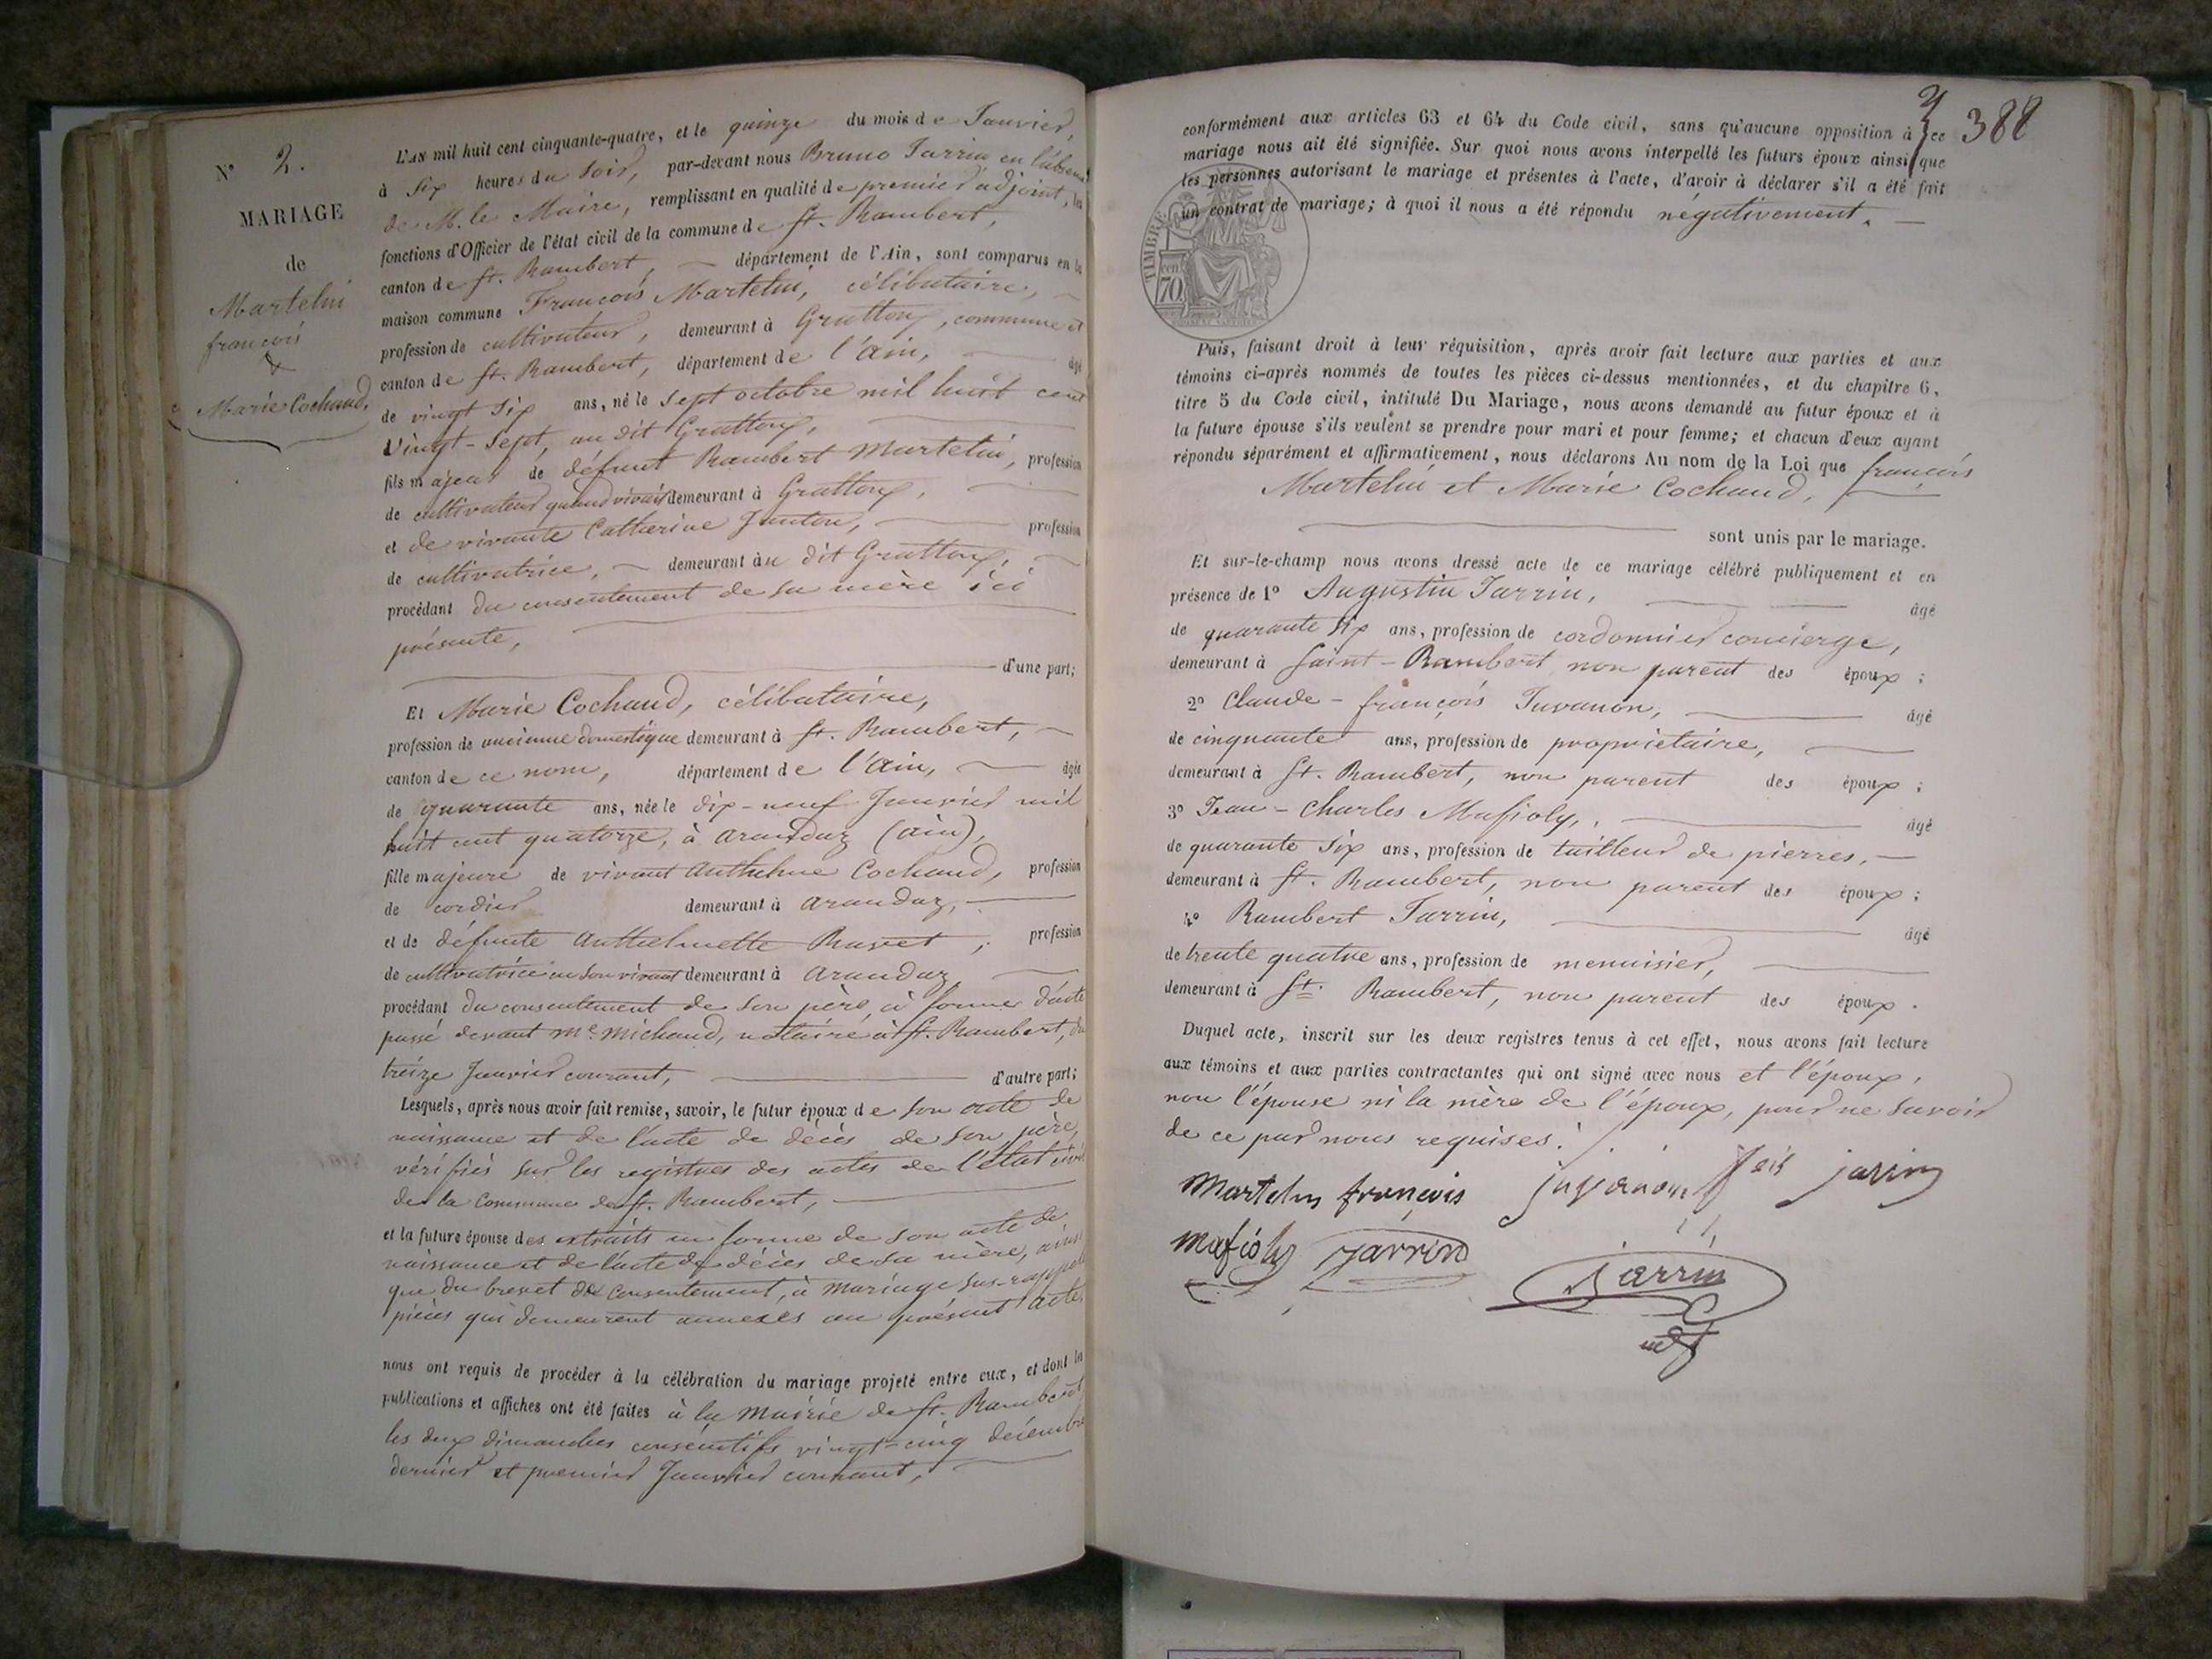 N° 2.
MARIAGE
de
Martelin
françois
&
Marie Cochand.
L'AN mil huit cent cinquante-quatre, et le quinze du mois de Janvier,
à six heures du soir, par-devant nous Bruno Jarrin en l'absence
de M. le Maire, remplissant en qualité de premier adjoint, les
fonctions d'Officier de l'état civil de la commune de St. Rambert,
canton de St. Rambert, département de l'Ain, sont comparus en la
maison commune François Martelin, célibataire,
profession de cultivateur, demeurant à Grattoux, commune et
canton de St. Rambert, département de l'Ain, âgé
de vingt six ans, né le sept octobre mil huit cent
vingt-sept, au dit Grattoux,
fils majeur de défunt Rambert Martelin, profession
de cultivateur quand vivait demeurant à Grattoux,
et de vivante Catherine Janton, profession
de cultivatrice, demeurant au dit Grattoux,
procédant du consentement de sa mère ici
présente,
d'une part;
Et Marie Cochand, célibataire,
profession de ancienne domestique demeurant à St. Rambert,
canton de ce nom, département de l'Ain, âgée
de quarante ans, née le dix-neuf Janvier mil
huit cent quatorze, à arandaz (ain),
fille majeure de vivant Anthelme Cochand, profession
de cordier demeurant à arandaz,
et de défunte Anthelmette Ravet, profession
de cultivatrice en son vivant demeurant à arandaz
procédant du consentement de son père, à forme d'acte
passé devant Me Michaud, notaire à St. Rambert, du
treize Janvier courant, d'autre part;
Lesquels, après nous avoir fait remise, savoir, le futur époux de son acte de
naissance et de l'acte de décès de son père,
vérifiés sur les registres des actes de l'état civil
de la Commune de St. Rambert,
et la future épouse des extraits en forme de son acte de
naissance et de l'acte de décès de sa mère, ainsi
que du brevet de consentement, à mariage sus-rappelé
pièces qui demeurent annexés au présent acte
nous ont requis de procéder à la célébration du mariage projeté entre eux, et dont les
publications et affiches ont été faites à la mairie de St. Rambert
les deux dimanches consécutifs vingt-cinq décembre
dernier et premier Janvier courant,
388
conformément aux articles 63 et 64 du Code civil, sans qu'aucune opposition à ce
mariage nous ait été signifiée. Sur quoi nous avons interpellé les futurs époux ainsi que
les personnes autorisant le mariage et présentes à l'acte, d'avoir à déclarer s'il a été fait
un contrat de mariage; à quoi il nous a été répondu négativement.
TIMBRE
cen
70
Puis, faisant droit à leur réquisition, après avoir fait lecture aux parties et aux
témoins ci-après nommés de toutes les pièces ci-dessus mentionnées, et du chapitre 6,
titre 5 du Code civil, intitulé Du Mariage, nous avons demandé au futur époux et à
la future épouse s'ils veulent se prendre pour mari et pour femme; et chacun d'eux ayant
répondu séparément et affirmativement, nous déclarons Au nom de la Loi que françois
Martelin et Marie Cochand,
sont unis par le mariage.
Et sur-le-champ nous avons dressé acte de ce mariage célébré publiquement et en
présence de 1° Augustin Jarrin, âgé
de quarante six ans, profession de cordonnier concierge,
demeurant à Saint-Rambert non parent des époux;
2° Claude-françois Juvanon, âgé
de cinquante ans, profession de propriétaire,
demeurant à St. Rambert, non parent des époux;
3° Jean-Charles Mafioly, âgé
de quarante six ans, profession de tailleur de pierres,
demeurant à St. Rambert, non parent des époux;
4° Rambert Jarrin, âgé
de trente quatre ans, profession de menuisier,
demeurant à St. Rambert, non parent des époux.
Duquel acte, inscrit sur les deux registres tenus à cet effet, nous avons fait lecture
aux témoins et aux parties contractantes qui ont signé avec nous et l'époux,
non l'épouse ni la mère de l'époux, pour ne savoir
de ce par nous requises.
Martelin françois juvanon fcois jarin
Mafioly Jarrin
Jarrin
adj